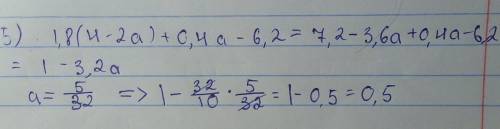 5) 1,8(4-2a)+0,4a-6,2=7,2-3,6a+0,4a-6,2
= 1-3,2a
a= 5/32 => 1- 32/10 · 5/32 = 1-0,5=0,5